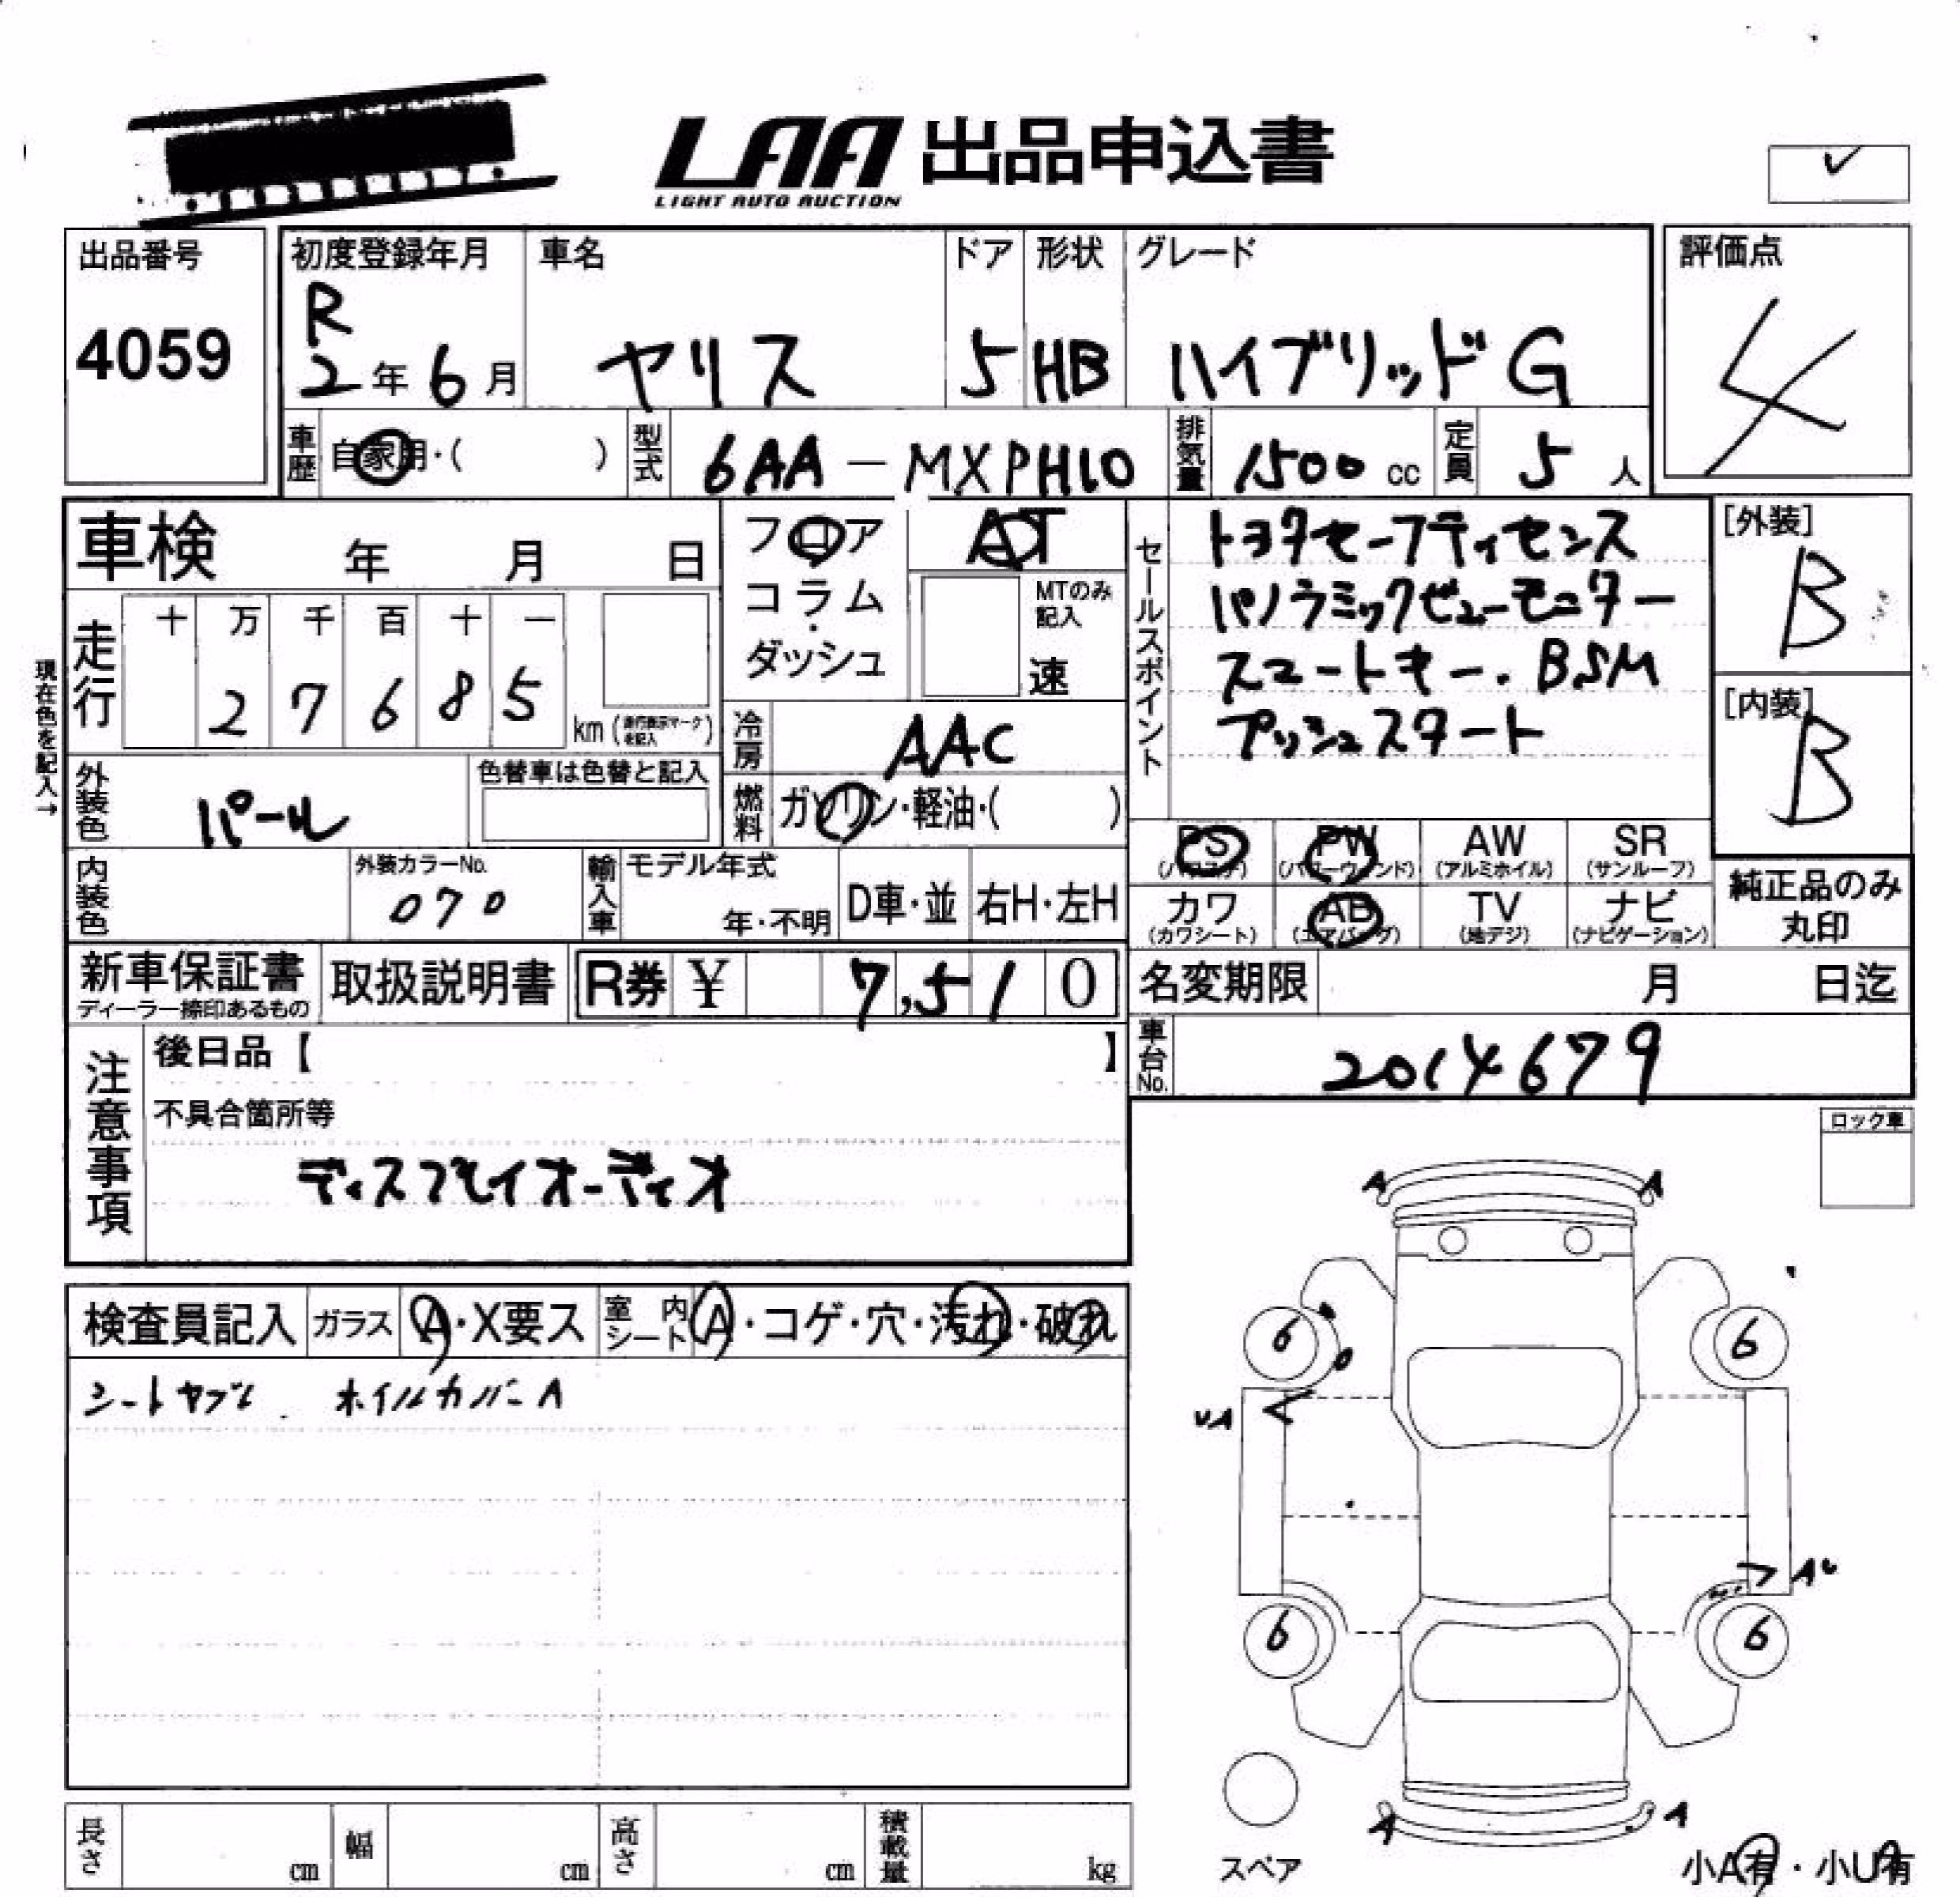 LAA 出品申込書
LIGHT AUTO AUCTION
出品番号
4059
初度登録年月
R
2年6月
車名
ヤリス
ドア
5
形状
HB
グレード
ハイブリッドG
評価点
4
車歴
自家用・( )
型式
6AA-MXPH10
排気量
1500cc
定員
5人
車検 年 月 日
フロア
コラム
・
ダッシュ
AT
MTのみ
記入
速
セールスポイント
トヨタセーフティセンス
パノラミックビューモニター
スマートキー.BSM
プッシュスタート
[外装]
B
[内装]
B
現在色を記入→
走行
十 万 千 百 十 一
2 7 6 8 5
km(走行表示マークを記入)
冷房
AAC
外装色
パール
色替車は色替と記入
燃料
ガソリン・軽油・( )
PS
(パワステ)
PW
(パワーウィンド)
AW
(アルミホイル)
SR
(サンルーフ)
カワ
(カワシート)
AB
(エアバッグ)
TV
(地デジ)
ナビ
(ナビゲーション)
純正品のみ
丸印
内装色
外装カラーNo.
070
輸入車
モデル年式
年・不明
D車・並
右H・左H
新車保証書
ディーラー捺印あるもの
取扱説明書
R券 ¥ 7,510
名変期限 月 日迄
車台No.
2014679
注意事項
後日品【 】
不具合箇所等
ディスプレイオーディオ
ロック車
検査員記入
ガラス
A・X要ス
室内シート
A・コゲ・穴・汚れ・破れ
シートヤブレ ホイルカバーA
A A
6 6
UA
AU
6 6
A A
スペア
小A有・小U有
長さ cm
幅 cm
高さ cm
積載量 kg